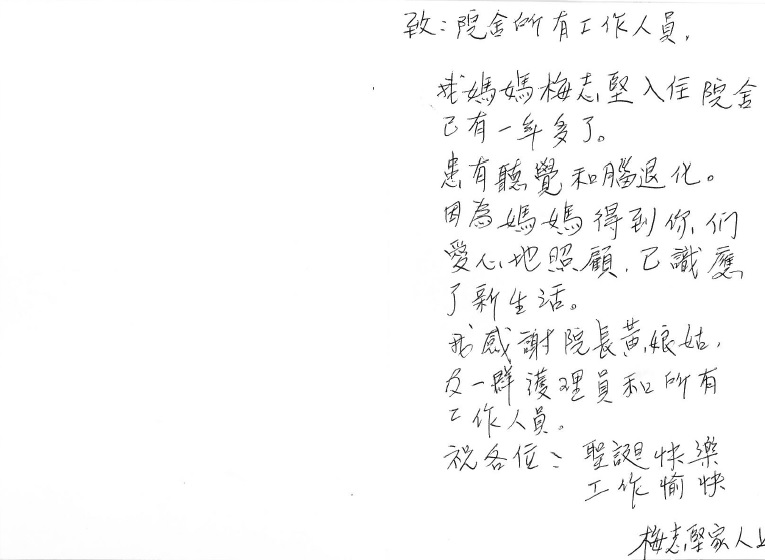 致：院舍所有工作人員，
我媽媽梅志堅入住院舍
已有一年多了。
患有聽覺和腦退化。
因為媽媽得到你們
愛心地照顧，已識應
了新生活。
我感謝院長黃娘姑，
及一群護理員和所有
工作人員。
祝各位：聖誕快樂
工作愉快
梅志堅家人上